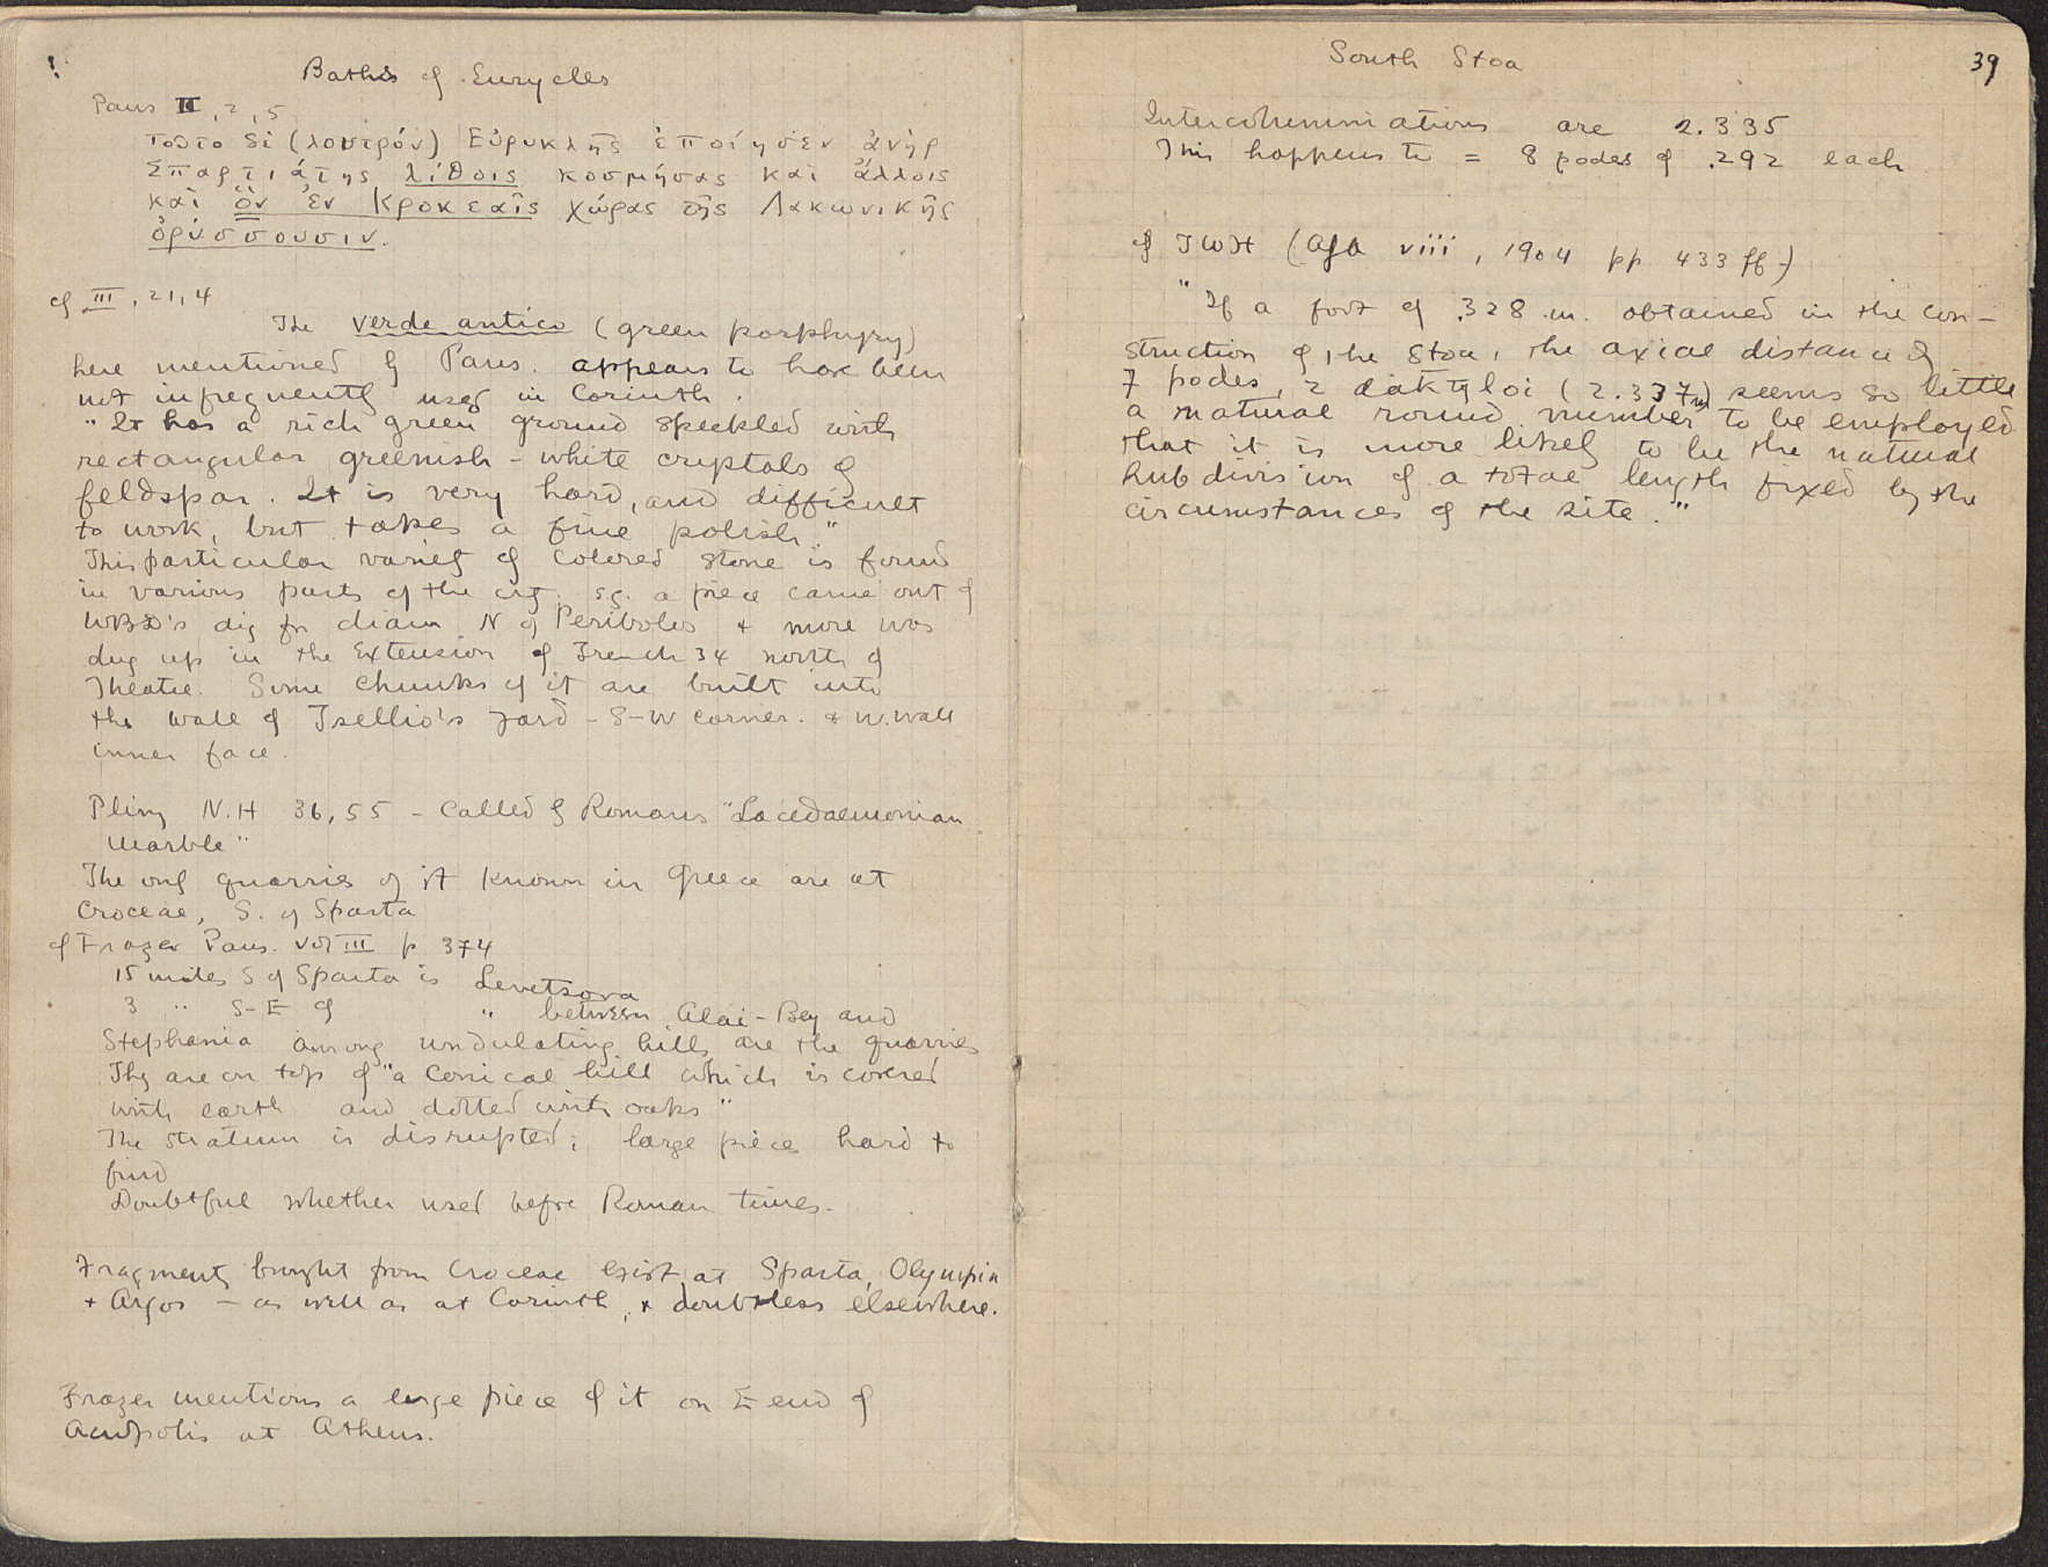 Baths of Eurycles
Paus II, 2, 5
τοῦτο δὲ (λουτρόν) Εὐρυκλῆς ἐποίησεν ἀνὴρ
Σπαρτιάτης λίθοις κοσμήσας καὶ ἄλλοις
καὶ ὃν ἐν Κροκεαῖς χώρας τῆς Λακωνικῆς
ὀρύσσουσιν.
cf III, 21, 4
The verde antico (green porphyry)
here mentioned by Paus. appears to have been
not infrequently used in Corinth.
"It has a rich green ground speckled with
rectangular greenish-white cryptals of
feldspar. It is very hard, and difficult
to work, but takes a fine polish."
This particular variety of colored stone is found
in various parts of the city. e.g. a piece came out of
WBD's dig for diam N of Peribolos + more was
dug up in the Extension of Trench 34 north of
Theatre. Some chunks of it are built into
the wall of Tsellio's yard - S-W corner. + W. wall
inner face.
Pliny N.H 36, 55 - Called by Romans "Lacedaemonian
Marble"
The only quarries of it known in Greece are at
Croceae, S. of Sparta
cf Frazer Paus. vol III p 374
15 miles S of Sparta is Levetsova
3 " S-E of " between Alai-Bey and
Stephania among undulating hills are the quarries
They are on top of "a conical hill which is covered
with earth and dotted with oaks"
The stratum is disrupted; large pieces hard to
find
Doubtful whether used before Roman times.
Fragments bought from Croceae exist at Sparta, Olympia
+ Argos - as well as at Corinth, + doubtless elsewhere.
Frazer mentions a large piece of it on E end of
Acropolis at Athens.
South Stoa
39
Intercolumniations are 2.335
This happens to = 8 podes of .292 each
cf TWH (AJA viii, 1904 pp 433 ff-)
"If a foot of .328 m. obtained in the con-
struction of the Stoa, the axial distance of
7 podes, 2 daktyloi (2.337m) seems so little
a natural round number to be employed
that it is more likely to be the natural
subdivision of a total length fixed by the
circumstances of the site."